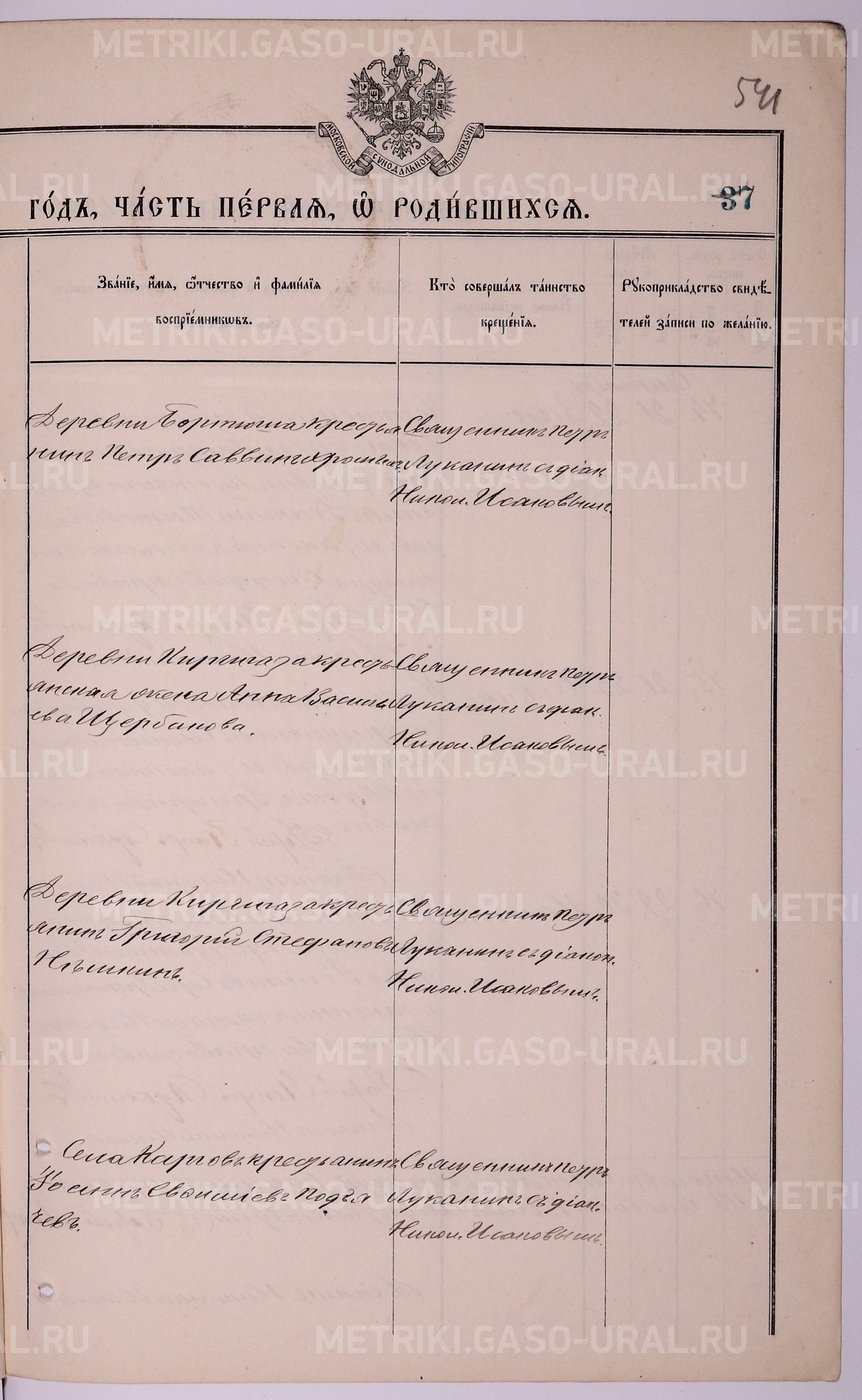 541
МОСКОВСКОЙ СѴНОДАЛЬНОЙ ТИПОГРАФІИ
ГО́ДЪ, ЧА́СТЬ ПЕ́РВАѦ, Ѽ РОДИ́ВШИХСѦ.
37
Зва́нїе, и҆́мѧ, ѻ҆́тчество и҆ фами́лїѧ
воспрїе́мникѡвъ.
Кто̀ соверша́лъ та́инство
креще́нїѧ.
Рꙋкоприкла́дство свидѣ́-
телей за́писи по жела́нїю.
Деревни крестья
нинъ Петръ Саввинъ
Священникъ Петръ
Луканинъ съ діак.
Никол. Исаковымъ.
Деревни Киргишаза кресть
янская жена Анна Василь
ева Щербакова.
Священникъ Петръ
Луканинъ съ діак.
Никол. Исаковымъ.
Деревни Киргишаза кресть
янинъ Григорій Стефановъ
Священникъ Петръ
Луканинъ съ діакон.
Никол. Исаковымъ.
Села крестьянинъ
Іоаннъ Подъя
чевъ.
Священникъ Петръ
Луканинъ съ діак.
Никол. Исаковымъ.
METRIKI.GASO-URAL.RU